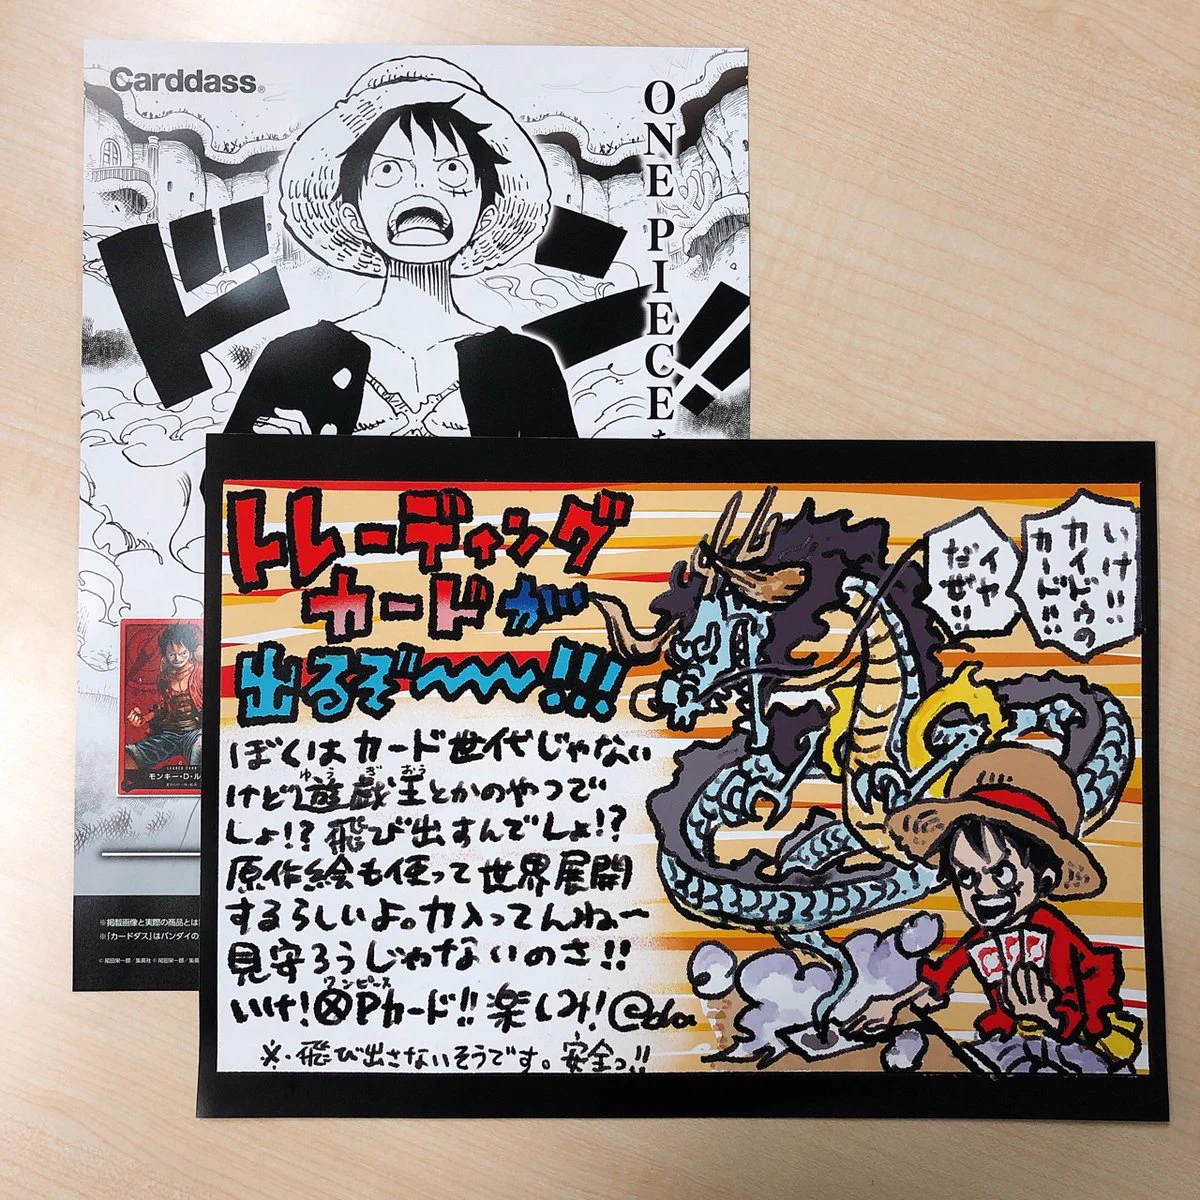 Carddass®
ONE PIECE
ドン!!
LEADER CARD
モンキー・D・ル
※掲載画像と実際の商品とは
※「カードダス」はバンダイの
© 尾田栄一郎／集英社 © 尾田栄一郎／集英
トレーディング
カードが
出るぞ〜〜!!!
いけ!!
カイドウの
カード!!
イヤ
だぜ!!
ぼくはカード世代じゃない
けど遊戯王とかのやつで
ゆうぎおう
しょ!?飛び出すんでしょ!?
原作絵も使って世界展開
するらしいよ。力入ってんねー
見守ろうじゃないのさ!!
ワンピース
いけ!ⓍPカード!!楽しみ!
※・飛び出さないそうです。安全っ!!